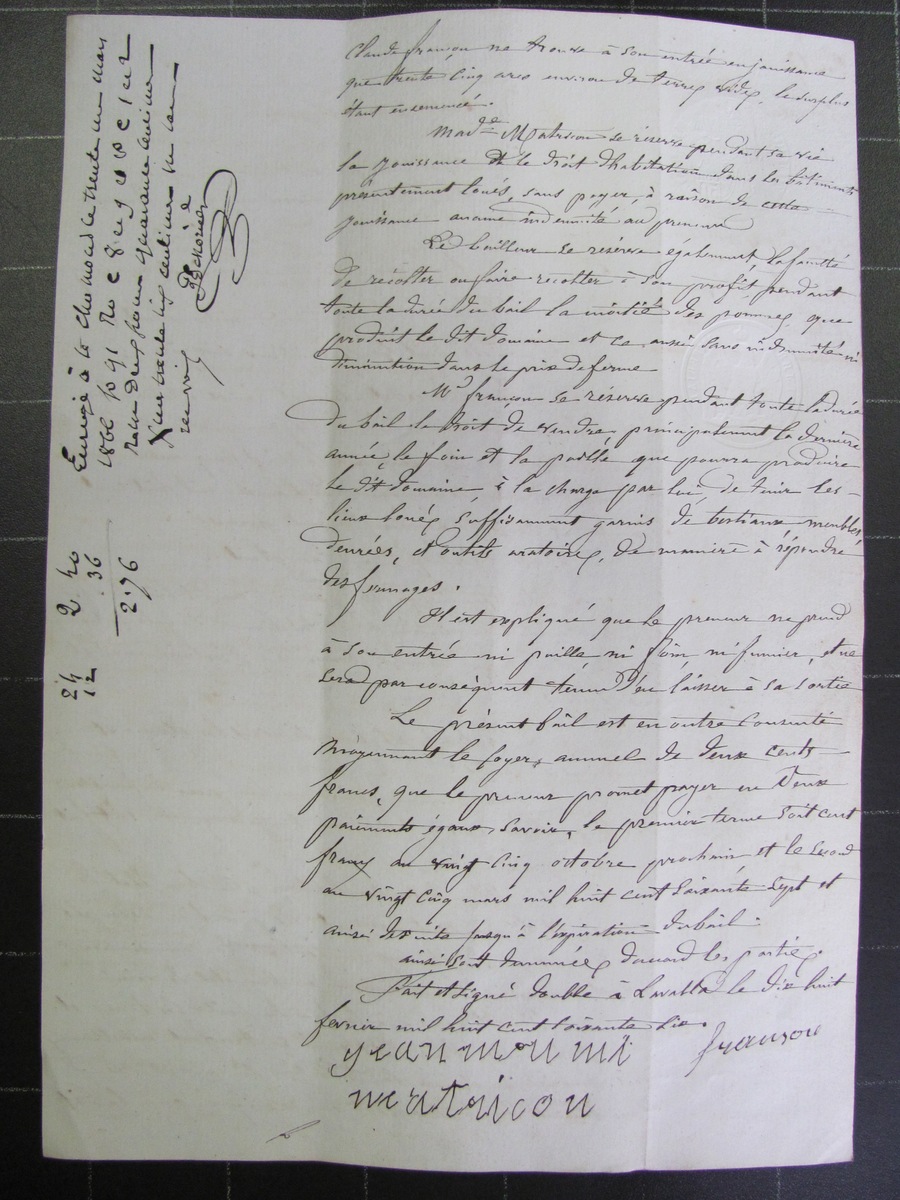 Claude françon ne trouve à son entrée en jouissance
que trente cinq ares environ de terres vides, le surplus
étant ensemencé.
Mad.e Matricon se réserve pendant sa vie
la jouissance et le droit d'habitation dans les bâtiments
présentement loués, sans payer, à raison de cette
jouissance aucune indemnité au preneur
Le bailleur se réserve également la faculté
de récolter ou faire récolter à son profit pendant
toute la durée du bail la moitié des pommes, que
produit le dit domaine et ce aussi sans indemnité ni
diminution dans le prix de ferme
Mr françon se réserve pendant toute la durée
du bail le droit de vendre, principalement la dernière
année, le foin et la paille que pourra produire
le dit domaine, à la charge par lui, de tenir les
lieux loués, suffisamment garnis de bestiaux, meubles,
denrées, et outils aratoires, de manière à répondre
des fermages.
Il est expliqué que le preneur ne prend
à son entrée ni paille ni foin, ni fumier, et ne
sera par conséquent tenu d'en laisser à sa sortie
Le présent bail est en outre consenti
moyennant le loyer, annuel de deux cents
francs, que le preneur promet payer en deux
paiements égaux savoir, le premier terme soit cent
francs au vingt cinq octobre prochain, et le second
au vingt cinq mars mil huit cent soixante sept et
ainsi de suite jusqu'à l'expiration du bail.
ainsi sont demeurées d'accord les parties.
Fait et signé double à Lavalla le dix huit
février mil huit cent soixante six.
françon
matricon
Enregé à St Chamond le trente un mars
1866 fo 91 Ro c 8
deux francs quarante centimes
2 40
36
2.76
24
12